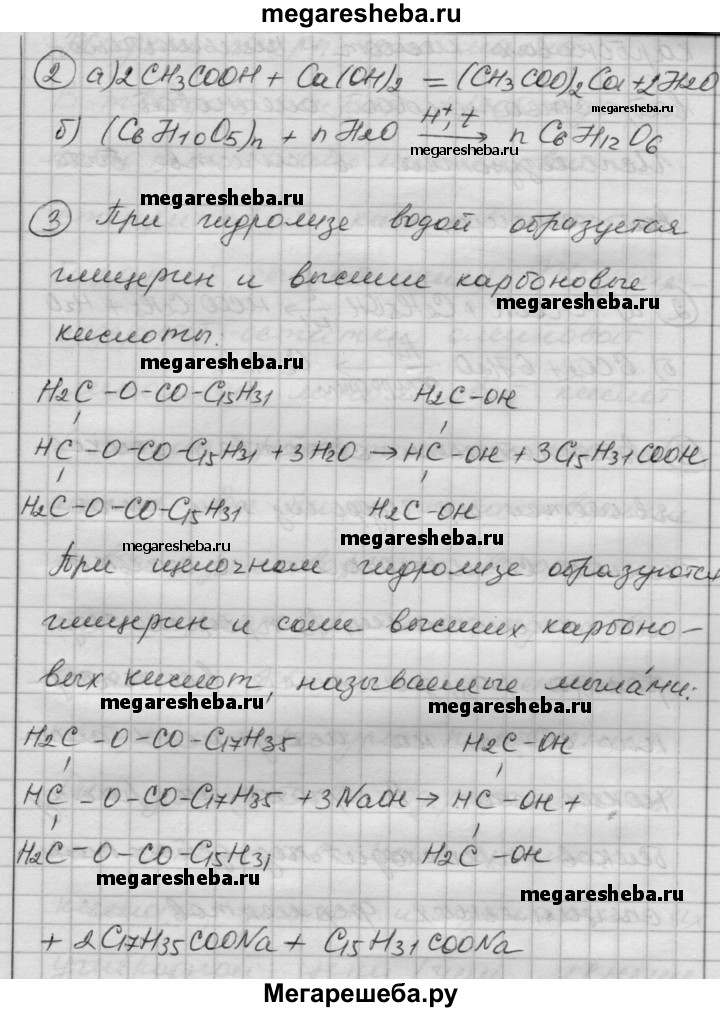 megaresheba.ru
2 а) 2CH3COOH + Ca(OH)2 = (CH3COO)2Ca + 2H2O
megaresheba.ru
б) (C6H10O5)n + nH2O H+, t → nC6H12O6
megaresheba.ru
megaresheba.ru
3 При гидролизе водой образуется
глицерин и высшие карбоновые
megaresheba.ru
кислоты.
megaresheba.ru
H2C-O-CO-C15H31 H2C-OH
HC-O-CO-C15H31 + 3H2O → HC-OH + 3C15H31COOH
H2C-O-CO-C15H31 H2C-OH
megaresheba.ru megaresheba.ru
При щелочном гидролизе образуются
глицерин и соли высших карбоно-
вых кислот, называемые мылами:
megaresheba.ru megaresheba.ru
H2C-O-CO-C17H35 H2C-OH
HC-O-CO-C17H35 + 3NaOH → HC-OH +
H2C-O-CO-C15H31 H2C-OH
megaresheba.ru megaresheba.ru
+ 2C17H35COONa + C15H31COONa
Мегарешеба.ру